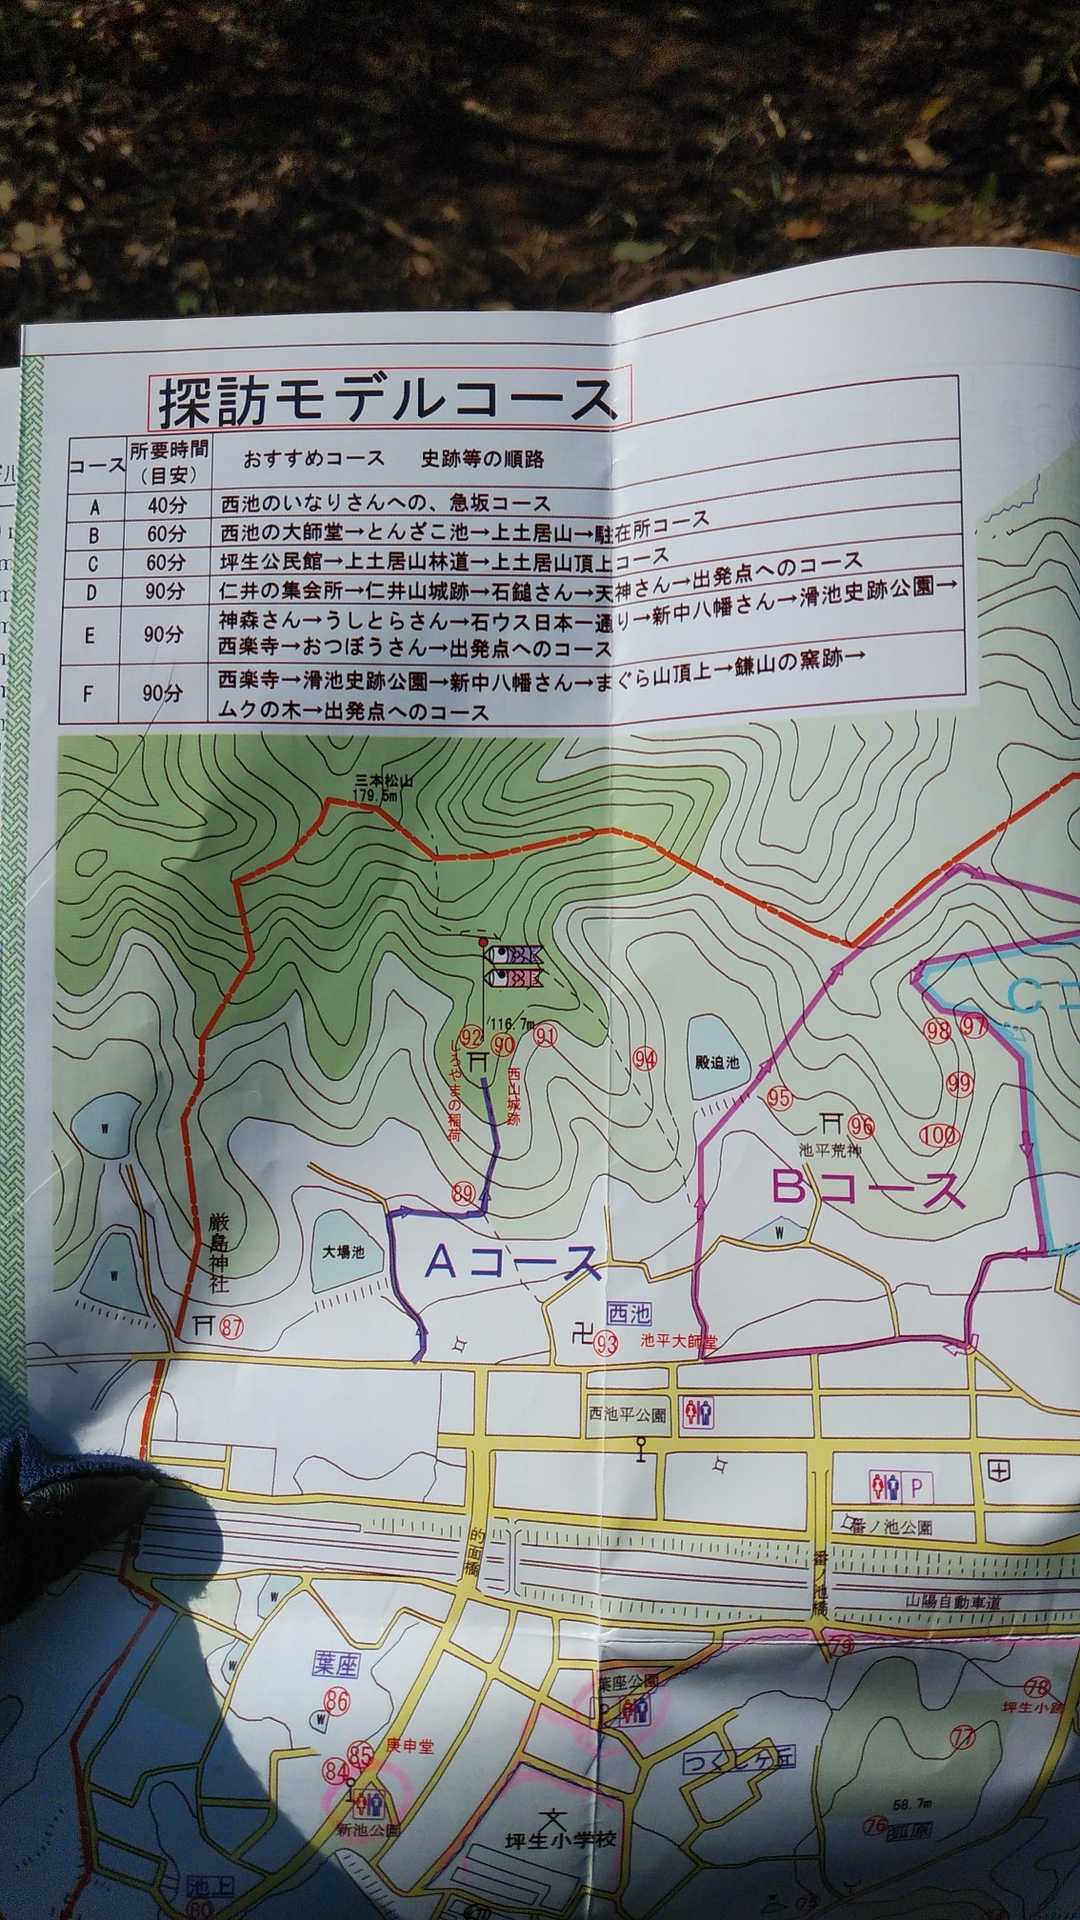 探訪モデルコース
コース 所要時間（目安） おすすめコース 史跡等の順路
A 40分 西池のいなりさんへの、急坂コース
B 60分 西池の大師堂→とんざこ池→上土居山→駐在所コース
C 60分 坪生公民館→上土居山林道→上土居山頂上コース
D 90分 仁井の集会所→仁井山城跡→石鎚さん→天神さん→出発点へのコース
E 90分 神森さん→うしとらさん→石ウス日本一通り→新中八幡さん→滑池史跡公園→
西楽寺→おつぼうさん→出発点へのコース
F 90分 西楽寺→滑池史跡公園→新中八幡さん→まぐら山頂上→鎌山の窯跡→
ムクの木→出発点へのコース
三本松山
179.5m
116.7m
92
90
91
しろやまの稲荷
西山城跡
94
殿迫池
98
97
99
95
96
100
池平荒神
Cコ
Bコース
89
W
厳島神社
大場池
W
Aコース
W
西池
87
93
池平大師堂
西池平公園
P
番ノ池公園
的面橋
番ノ池橋
山陽自動車道
W
79
葉座
W
葉座公園
78
坪生小跡
86
W
P
77
85
庚申堂
つくしケ丘
84
58.7m
新池公園
文
坪生小学校
76
狐原
池上
80
70
75